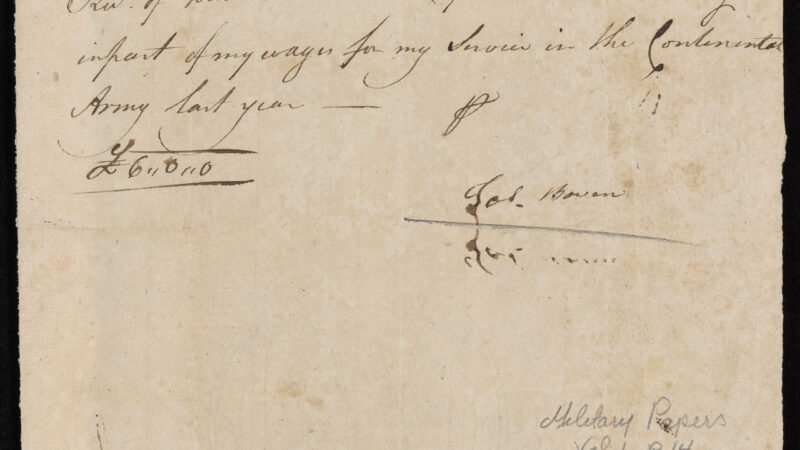 in part of my wages for my Service in the Continental
Army last year —
£6,,0,,0
Bowen
Military Papers
Vol. 1 P. 14